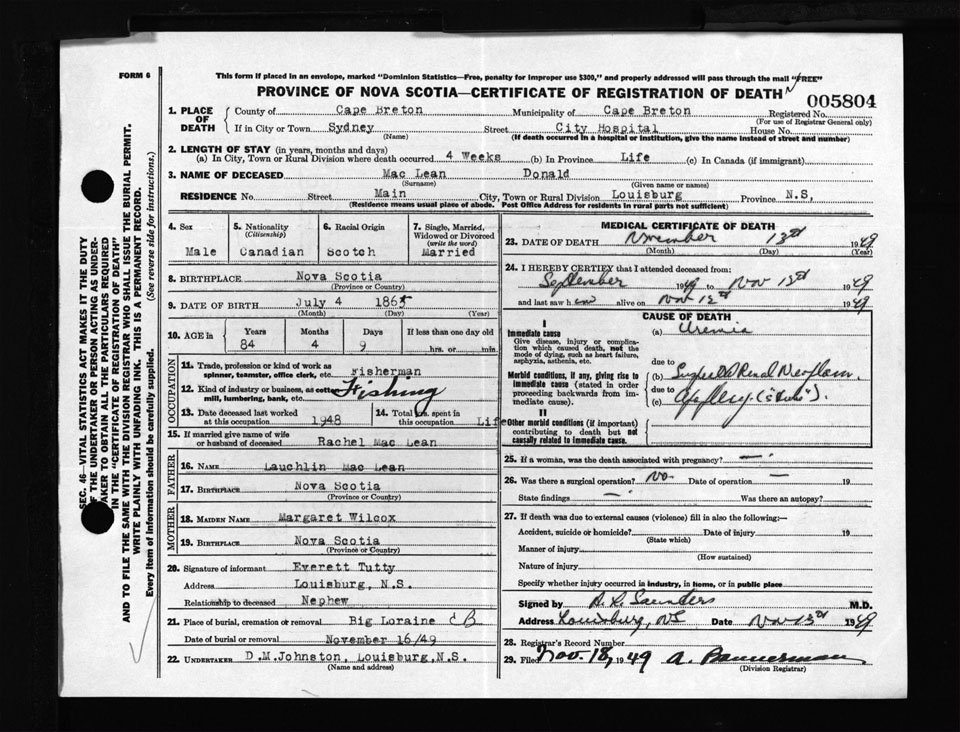 FORM 6
This form if placed in an envelope, marked "Dominion Statistics—Free, penalty for improper use $300," and properly addressed will pass through the mail "FREE"
PROVINCE OF NOVA SCOTIA—CERTIFICATE OF REGISTRATION OF DEATH
005804
1. PLACE OF DEATH
County of Cape Breton Municipality of Cape Breton Registered No.
(For use of Registrar General only)
If in City or Town Sydney Street City Hospital House No.
(Name) (If death occurred in a hospital or institution, give the name instead of street and number)
2. LENGTH OF STAY (in years, months and days)
(a) In City, Town or Rural Division where death occurred 4 Weeks (b) In Province Life (c) In Canada (if immigrant)
3. NAME OF DECEASED Mac Lean Donald
(Surname) (Given name or names)
RESIDENCE No. Street Main City, Town or Rural Division Louisburg Province N.S,
(Residence means usual place of abode. Post Office Address for residents in rural parts not sufficient)
4. Sex
Male
5. Nationality
(Citizenship)
Canadian
6. Racial Origin
Scotch
7. Single, Married, Widowed or Divorced
(write the word)
Married
8. BIRTHPLACE Nova Scotia
(Province or Country)
9. DATE OF BIRTH July 4 1865
(Month) (Day) (Year)
10. AGE in Years Months Days If less than one day old
84 4 9 hrs. or min.
OCCUPATION
11. Trade, profession or kind of work as
spinner, teamster, office clerk, etc. Fisherman
12. Kind of industry or business, as cotton
mill, lumbering, bank, etc. Fishing
13. Date deceased last worked
at this occupation 1948
14. Total yrs. spent in
this occupation Life
15. If married give name of wife
or husband of deceased Rachel Mac Lean
FATHER
16. NAME Lauchlin Mac Lean
17. BIRTHPLACE Nova Scotia
(Province or Country)
MOTHER
18. MAIDEN NAME Margaret Wilcox
19. BIRTHPLACE Nova Scotia
(Province or Country)
20. Signature of informant Everett Tutty
Address Louisburg, N.S.
Relationship to deceased Nephew
21. Place of burial, cremation or removal Big Loraine C B
Date of burial or removal November 16/49
22. UNDERTAKER D.M.Johnston, Louisburg,N.S.
(Name and address)
MEDICAL CERTIFICATE OF DEATH
23. DATE OF DEATH November 13th 1949
(Month) (Day) (Year)
24. I HEREBY CERTIFY that I attended deceased from:
September 1949 to Nov 13th 1949
and last saw him alive on Nov 12th 1949
CAUSE OF DEATH
I
Immediate cause
Give disease, injury or complication which caused death, not the mode of dying, such as heart failure, asphyxia, asthenia, etc.
(a) Uremia
due to
Morbid conditions, if any, giving rise to immediate cause (stated in order proceeding backwards from immediate cause).
(b) Renal
due to
(c)
II
Other morbid conditions (if important) contributing to death but not causally related to immediate cause.
25. If a woman, was the death associated with pregnancy? —
26. Was there a surgical operation? No. Date of operation — 19
State findings — Was there an autopsy?
27. If death was due to external causes (violence) fill in also the following:—
Accident, suicide or homicide? Date of injury 19
(State which)
Manner of injury
(How sustained)
Nature of injury
Specify whether injury occurred in industry, in home, or in public place
Signed by Saunders M.D.
Address Louisburg, NS Date Nov 13th 1949
28. Registrar's Record Number
29. Filed Nov. 18, 1949 A. Bannerman
(Division Registrar)
SEC. 46—VITAL STATISTICS ACT MAKES IT THE DUTY
OF THE UNDERTAKER OR PERSON ACTING AS UNDER-
TAKER TO OBTAIN ALL THE PARTICULARS REQUIRED
IN THE "CERTIFICATE OF REGISTRATION OF DEATH"
AND TO FILE THE SAME WITH THE DIVISION REGISTRAR WHO SHALL ISSUE THE BURIAL PERMIT.
WRITE PLAINLY WITH UNFADING INK. THIS IS A PERMANENT RECORD.
Every item of information should be carefully supplied. (See reverse side for instructions.)